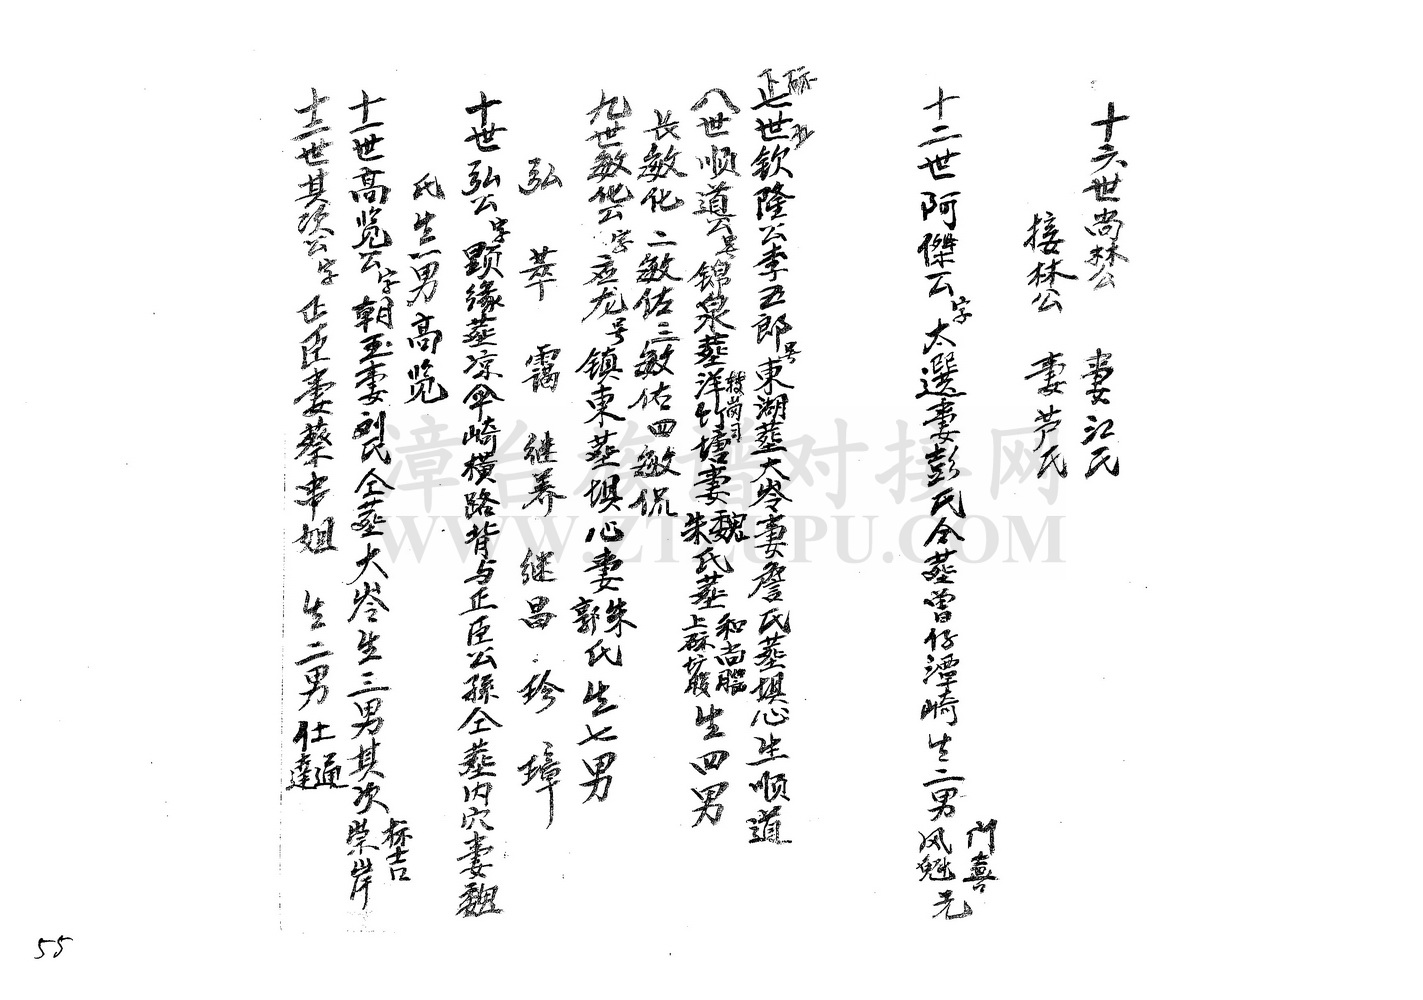 十六世尚林公 妻江氏
接林公 妻芦氏
十二世阿傑公字太選妻彭氏仝葬曾仔潭崎生二男凤魁
斗喜
七世钦隆公李五郎号東湖葬大岺妻詹氏葬埧心生顺道
八世顺道公号锦泉葬洋竹塘妻魏朱氏葬和尚 上 生四男
長敏化 二敏估 三敏佑 四敏侃
九世敏化公字应龙号镇東葬埧心妻朱郭氏生七男
弘 萃 靄 继养 继昌 珍 璋
十世弘公字顕缘葬凉伞崎横路背与正臣公孫仝葬内穴妻魏
氏生一男高览
十一世高览公字朝玉妻刘氏仝葬大岺生三男其次 崇岸
十二世其次公字正臣妻蔡 姐 生二男仕通達
漳台族谱对接网
WWW.ZTZUPU.COM
55